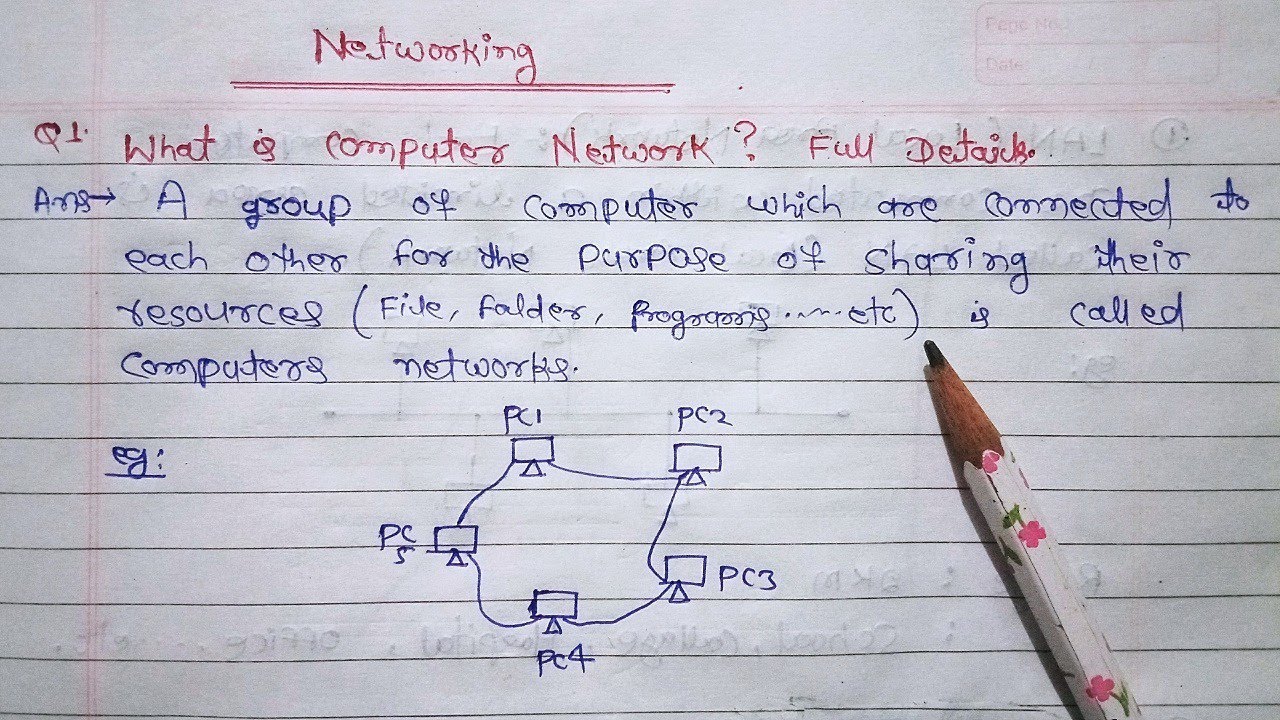 Page No.
Date
Networking
Q1. What is computer Network? Full Details.
Ans→ A group of computer which are connected to
each other for the purpose of sharing their
resources (File, Folder, Programs......etc) is called
computers networks.
eg:
PC1
PC2
PC
5
PC3
PC4